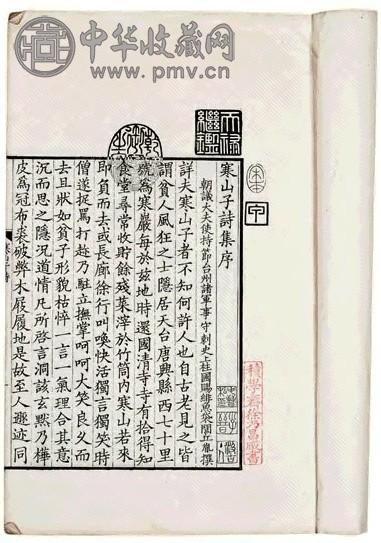 中华收藏网
www.pmv.cn
天祿繼鑑
宋本
寒山子詩集序
朝議大夫使持節台州諸軍事守刺史上柱國賜緋魚袋閭丘胤撰
詳夫寒山子者不知何許人也自古老見之皆
謂貧人風狂之士隱居天台唐興縣西七十里
號為寒巖每於茲地時還國清寺寺有拾得知
食堂尋常收貯餘殘菜滓於竹筒內寒山若來
即負而去或長廊徐行叫喚快活獨言獨笑時
僧遂捉罵打趁乃駐立撫掌呵呵大笑良久而
去且狀如貧子形貌枯悴一言一氣理合其意
沉而思之隱況道情凡所啓言洞該玄默乃樺
皮為冠布裘破弊木屐履地是故至人遯迹同
積學齋徐乃昌藏書